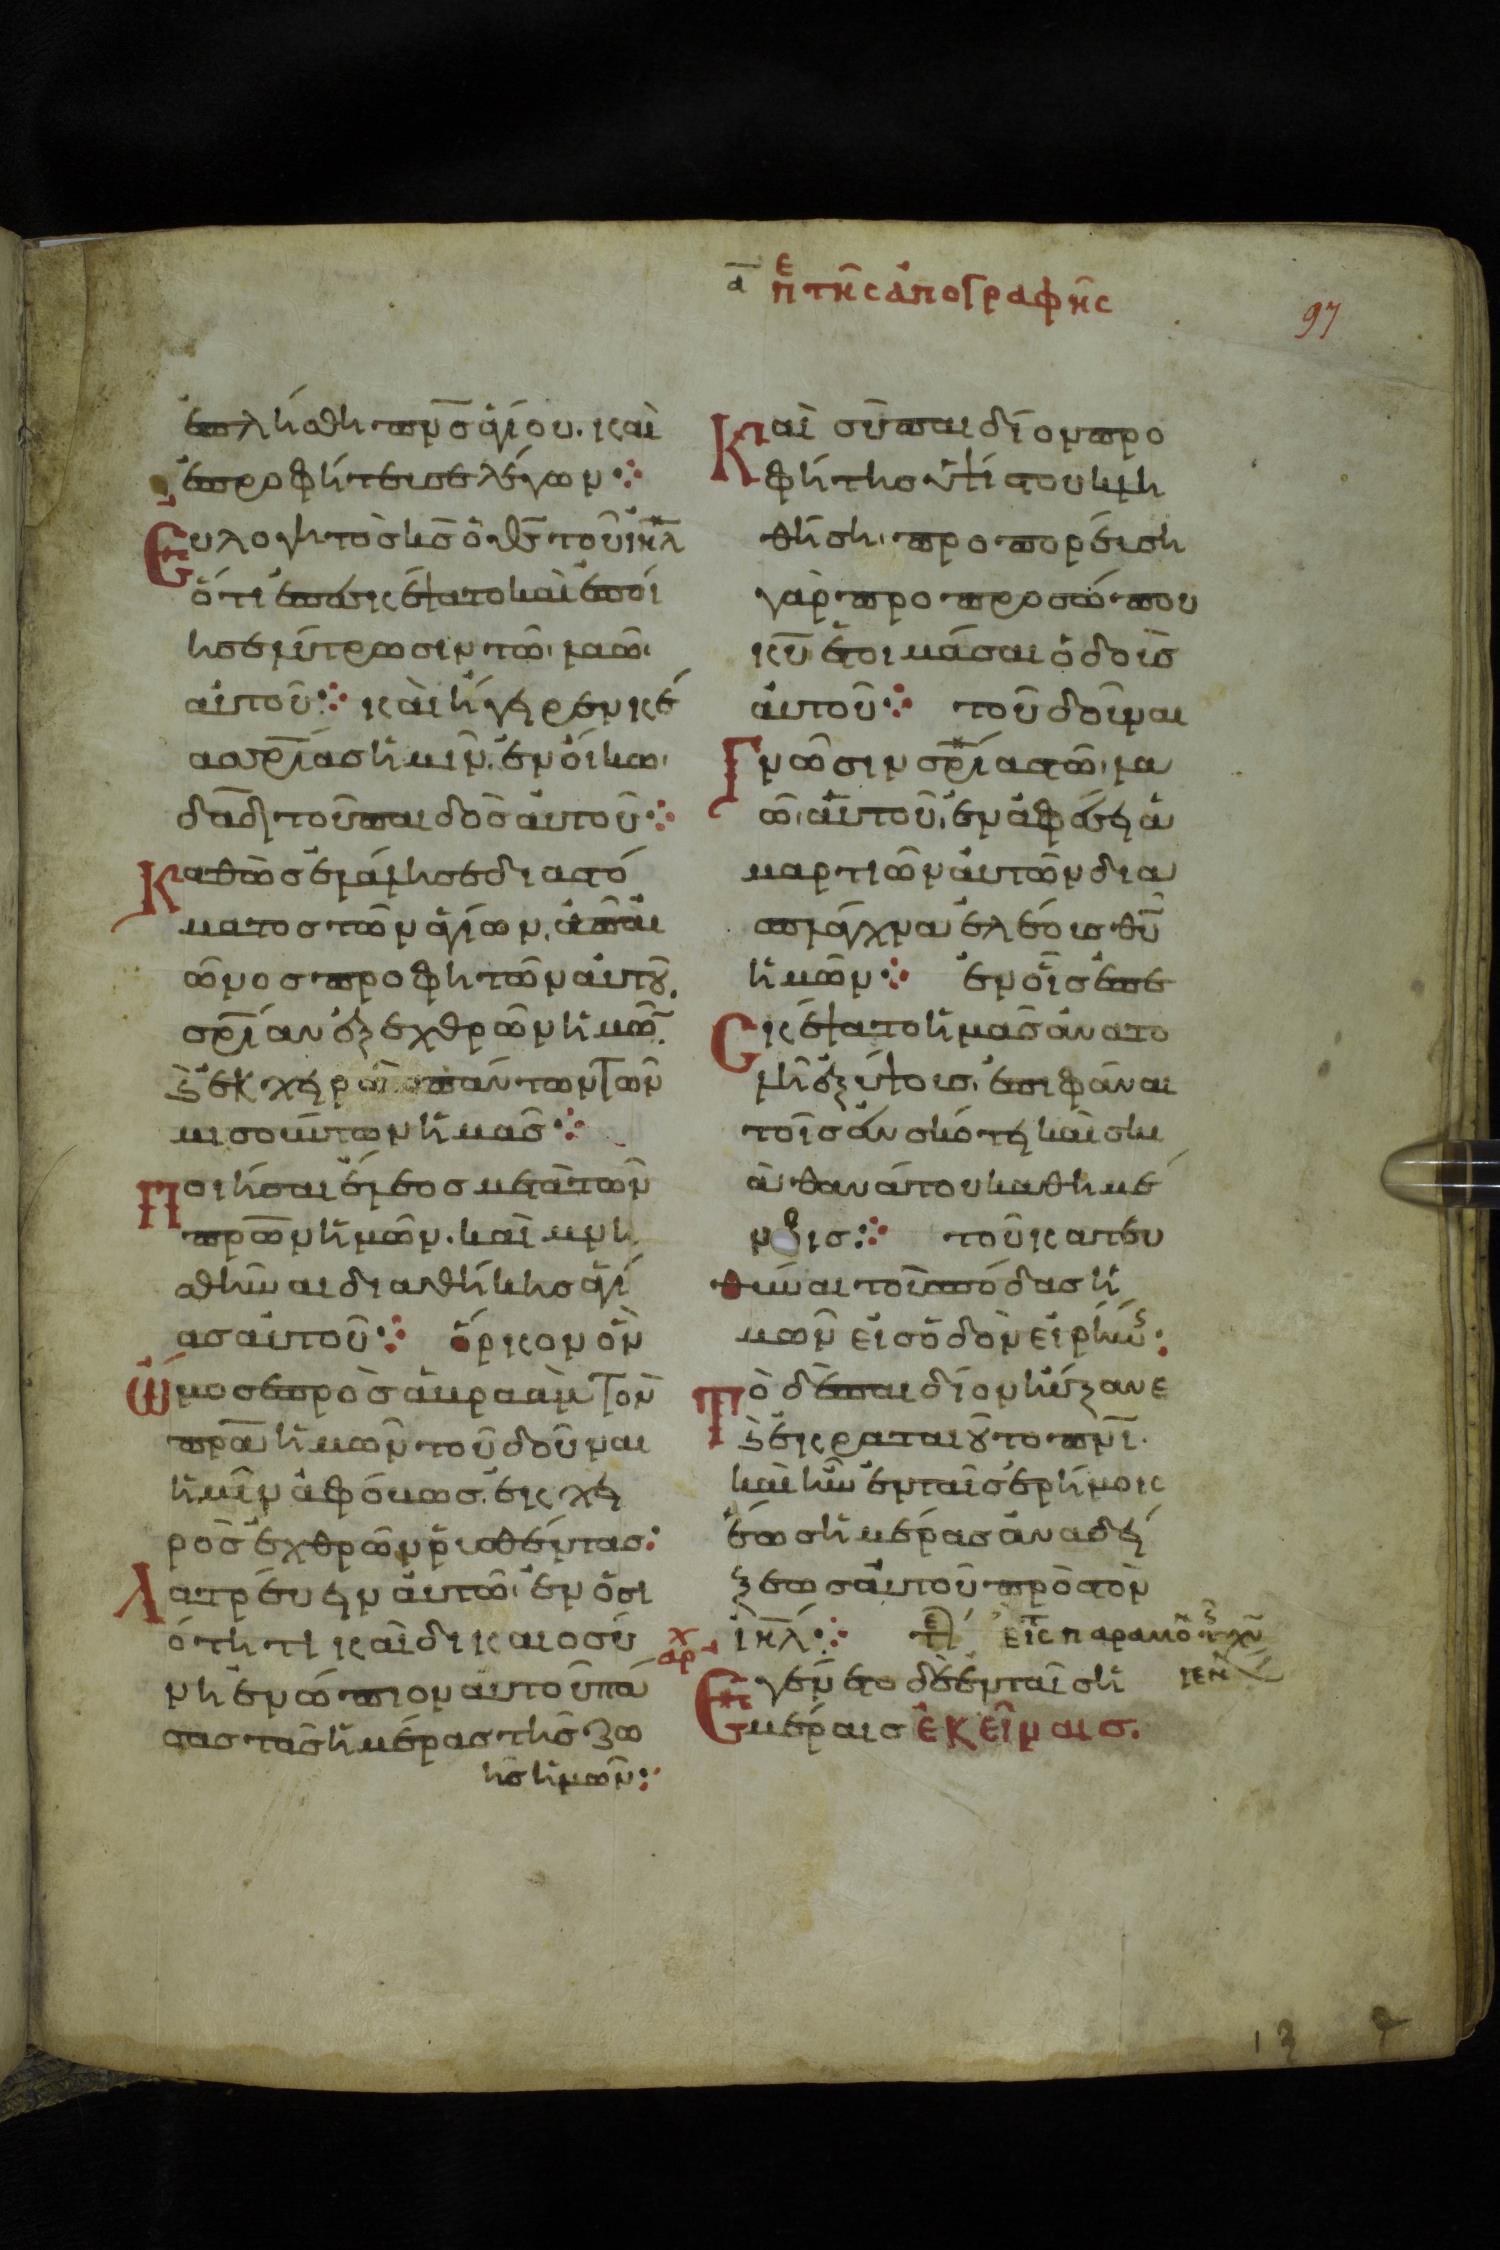 α π̅ε τῆς ἀπογραφῆς
97
ἐπλήσθη πν̅ς ἁγίου. καὶ
ἐπροφήτευσε λέγων
Εὐλογητὸς κ̅ς ὁ θ̅ς τοῦ ἰη̅λ
ὅτι ἐπεσκέψατο καὶ ἐποί
ησε λύτρωσιν τῶ λαῶ
αὐτοῦ καὶ ἤγειρεν κέ
ας σρ̅ίας ἡμῖν. ἐν οἴκω
δα̅δ τοῦ παιδὸς αὐτοῦ
Καθὼς ἐλάλησε δια στό
ματος τῶν ἁγίων, ἀπ' αἰ
ῶνος προφητῶν αὐτοῦ.
σρ̅ίαν ἐξ ἐχθρῶν ἡμῶ̅.
κ̀ ἐκ χειρὸς πάντων τῶν
μισούντων ἡμᾶς
Ποιῆσαι ἔλεος μετὰ τῶν
πρ̅ων ἡμῶν. καὶ μνη
σθῆναι διαθήκης ἁγί
ας αὐτοῦ ὅρκον ὃν
Ὤμοσε πρὸς ἀβραὰμ τὸν
πρ̅α ἡμῶν τοῦ δοῦναι
ἡμῖν ἀφόβως. ἐκ χει
ρὸς ἐχθρῶν ῥυσθέντας:
Λατρεύειν αὐτῶ ἐν ὁσι
ότητι καὶ δικαιοσύ
νη ἐνώπιον αὐτοῦ πά
σας τὰς ἡμέρας τῆς ζω
ῆς ἡμῶν:
Καὶ σὺ παιδίον προ
φήτης ὑψίστου κλη
θήση. προπορεύση
γὰρ πρὸ προσώπου
κυ̅ ἑτοιμάσαι ὁδοὺς
αὐτοῦ τοῦ δοῦναι
Γνῶσιν σρ̅ίας τῶ λα
ῶ αὐτοῦ, ἐν ἀφέσει ἁ
μαρτιῶν αὐτῶν δια
σπλάγχνα ἐλέους θυ̅
ἡμῶν ἐν οἷς ἐπε
Σκέψατο ἡμᾶς ἀνατο
λὴ ἐξ ὕψους. ἐπιφᾶναι
τοῖς ἐν σκότει καὶ σκι
ᾶ θανάτου καθημέ
νοις: τοῦ κατευ
θῦναι τοὺς πόδας ἡ
μῶν εἰς ὁδὸν εἰρήν:
Τὸ δὲ παιδίον ηὔξανε
κ̀ ἐκραταιοῦτο πν̅ι.
καὶ ἦν ἐν ταῖς ἐρήμοις
ἕως ἡμέρας ἀναδεί
ξεως αὐτοῦ πρὸς τὸν
ἰη̅λ: τε εἰς παραμον τ χυ
γεν
Ἐγένετο δὲ ἐν ταῖς ἡ
μέραις ἐκείναις.